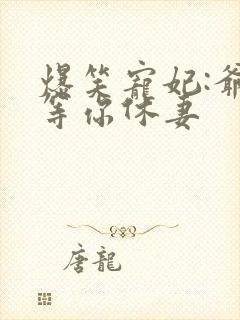 爆笑寵妃:爺
等你休妻
唐龍